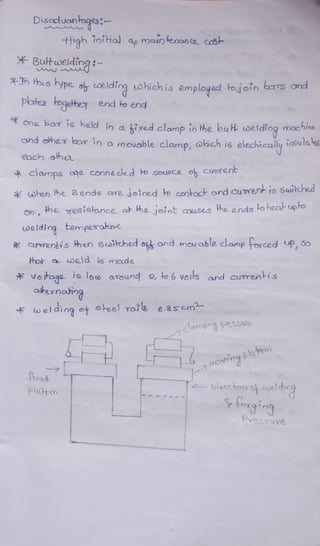 Disadvantages:-
High initial ap maintenance cost
* Buttwelding:-
* In this type of welding which is employed to join bars and
plates together end to end
* one bar is held in a fixed clamp in the butt welding machine
and other bar in a movable clamp, which is electrically insulated
each other
* clamps are connected to source of current
* when the 2 ends are joined to contact and current is switched
on, the resistance at the joint causes the ends to heat upto
welding temperature
* current is then switched off and movable clamp forced up, so
that a weld is made
* voltage is low around 2 to 6 volts and current is
alternating
* welding of steel rails 6.25cm²
clamping pressure
moving platern
fixed
Platern
Direction of welding
& forging
Pressure